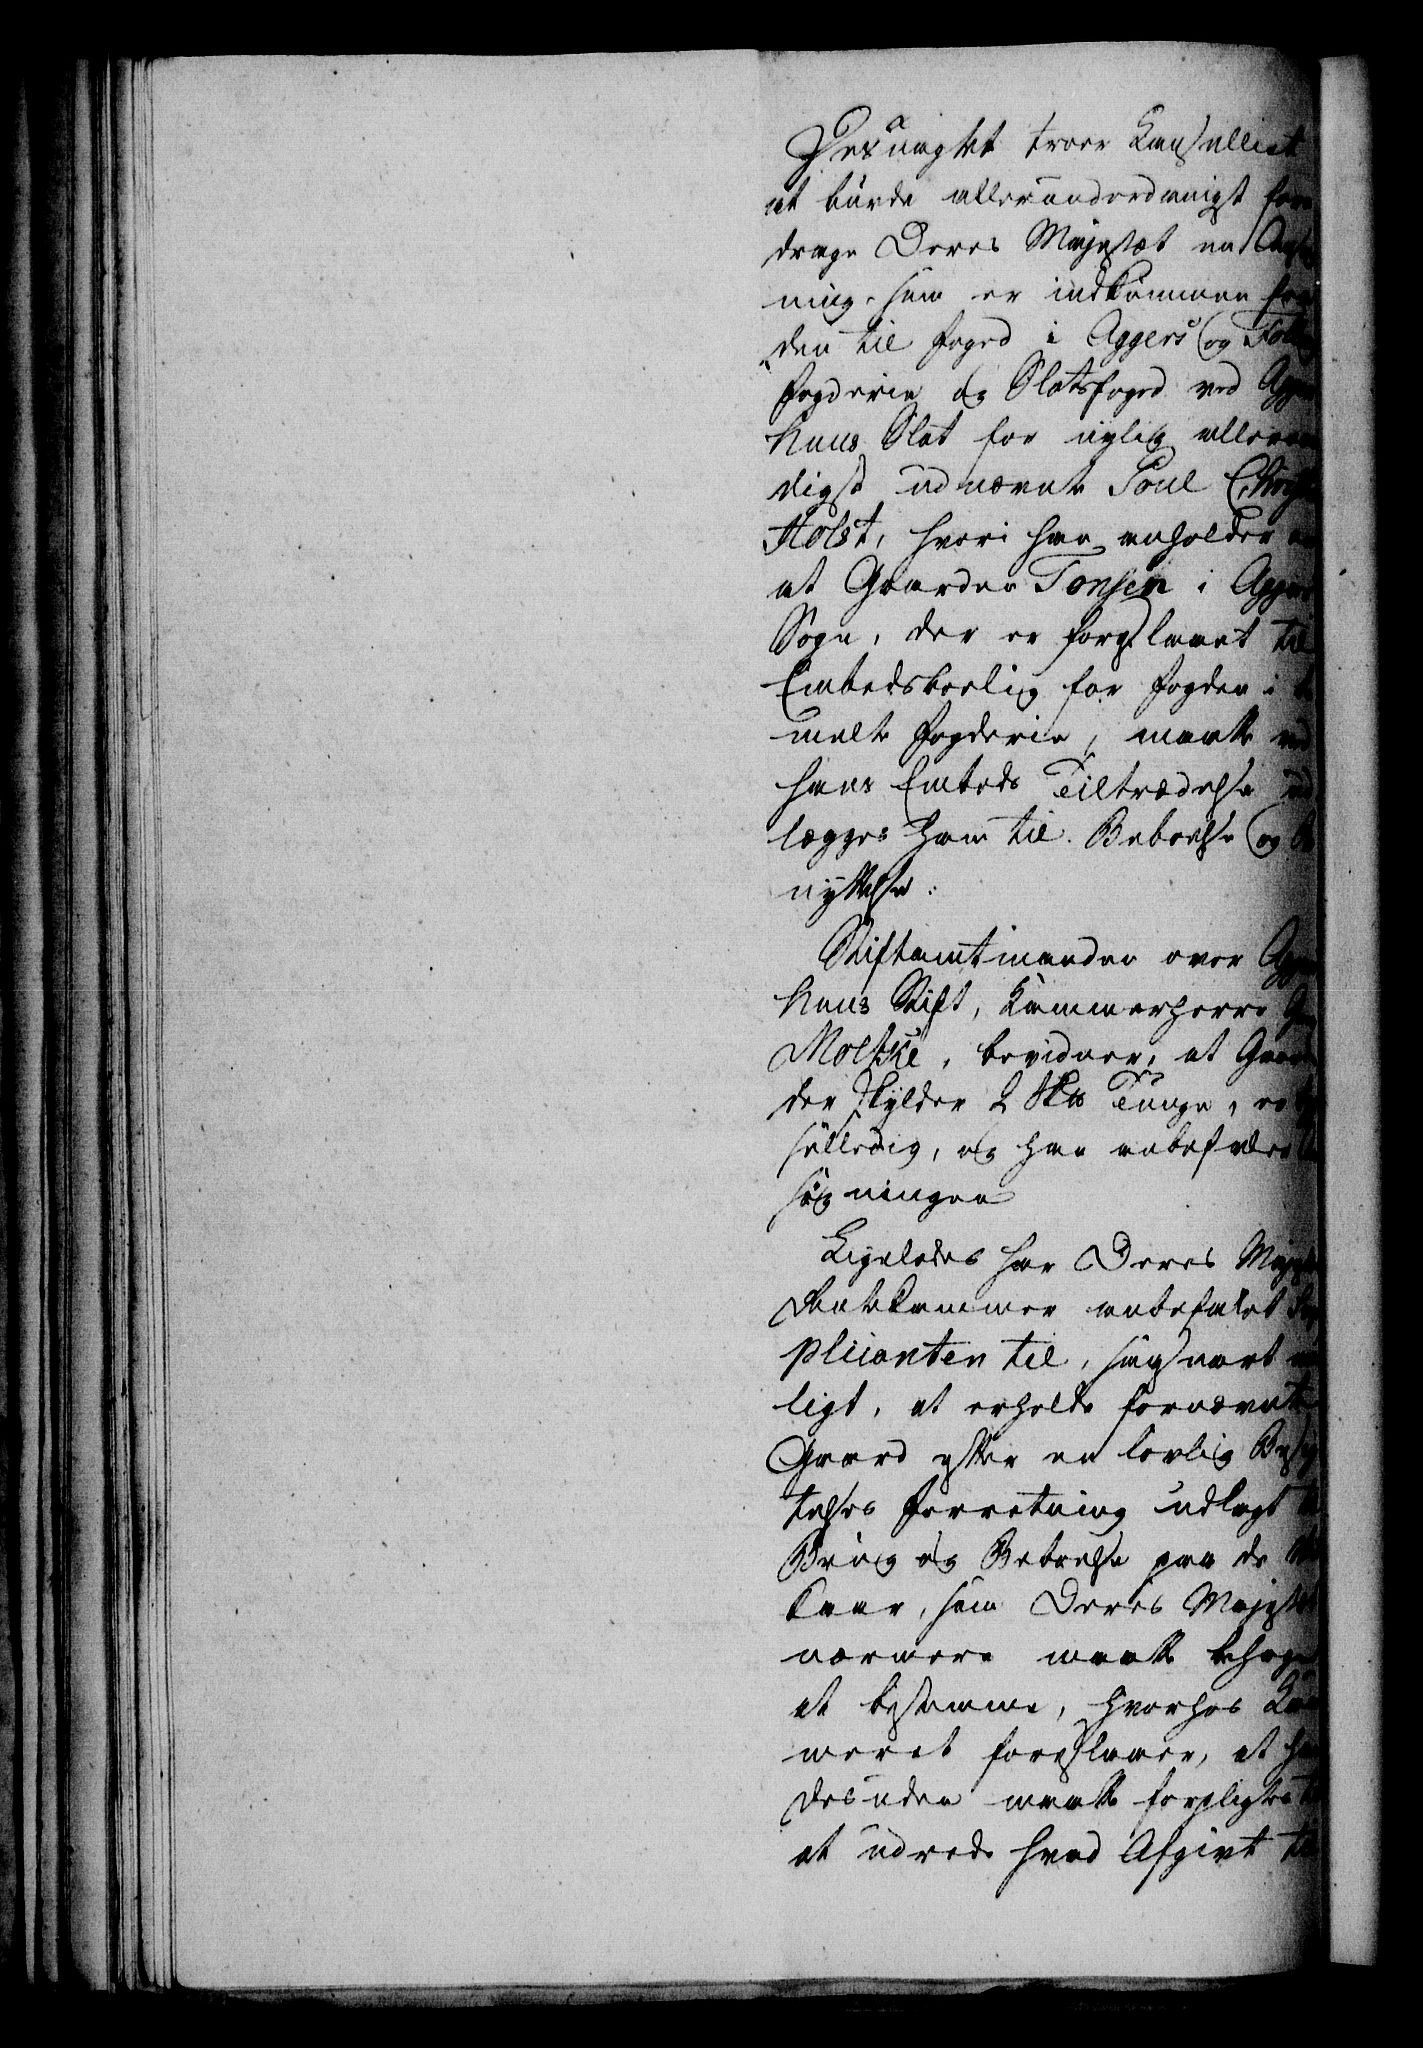 Desuagtet troer Cancelliet
at burde allerunderdanigst fore
drage Deres Majestæt en Ansø
ning, som er indkommen fra
den til Foged i Aggers og Follo
Fogderie og Slotsfoged ved Agger
huus Slot for nylig allernaa
digst udnævnte Poul Christian
Holst, hvori han anholder om
at Gaarden Tonsen i Aggers
Sogn, der er foreslaaet til
Embedsbolig for Fogden i be
meldte Fogderie, maatte ved
hans Embeds Tiltrædelse ud
lægges ham til Beboelse og Be
nyttelse.
Stiftamtmanden over Agger
huus Stift, Kammerherre
Moltke, bevidner, at Gaarden
der skylder 2 Skp Tunge, er
sælledig, og han anbefaler An
søgningen
Ligeledes har Deres Majestæts
Rentekammer anbefalet Sup
plicanten til, saasnart mu
ligt, at erholde fornævnte
Gaard efter en lovlig Besig
telses Forretning udlagt til
Brug og Beboelse paa de Vil
kaar, som Deres Majestæt
nærmere maatte behage
at bestemme, hvorhos Kam
meret foreslaaer, at han
desuden maatte forpligtes til
at udrede hvad Afgivt til